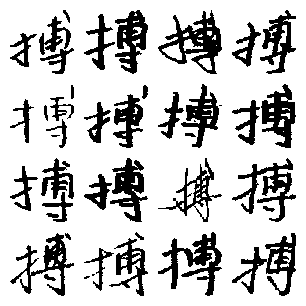 搏搏搏搏
搏搏搏搏
搏搏搏搏
搏搏搏搏